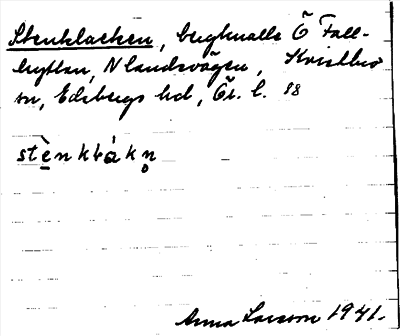 Stenklacken, bergknalle Ö Fall-
hyttan, N landsvägen, Kvistbro
sn, Edsbergs hd, Ör. l. 88
stè̱nkɫák n̥
Anna Larsson 1941.